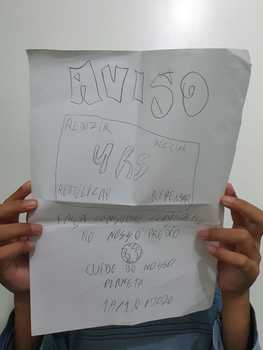 AVISO
REDUZIR RECICLAR
4 RS
REUTILIZAR REPENSAR
FAÇA CONSUMO
NO NOSSO PRÉDIO
CUIDE DO NOSSO
PLANETA